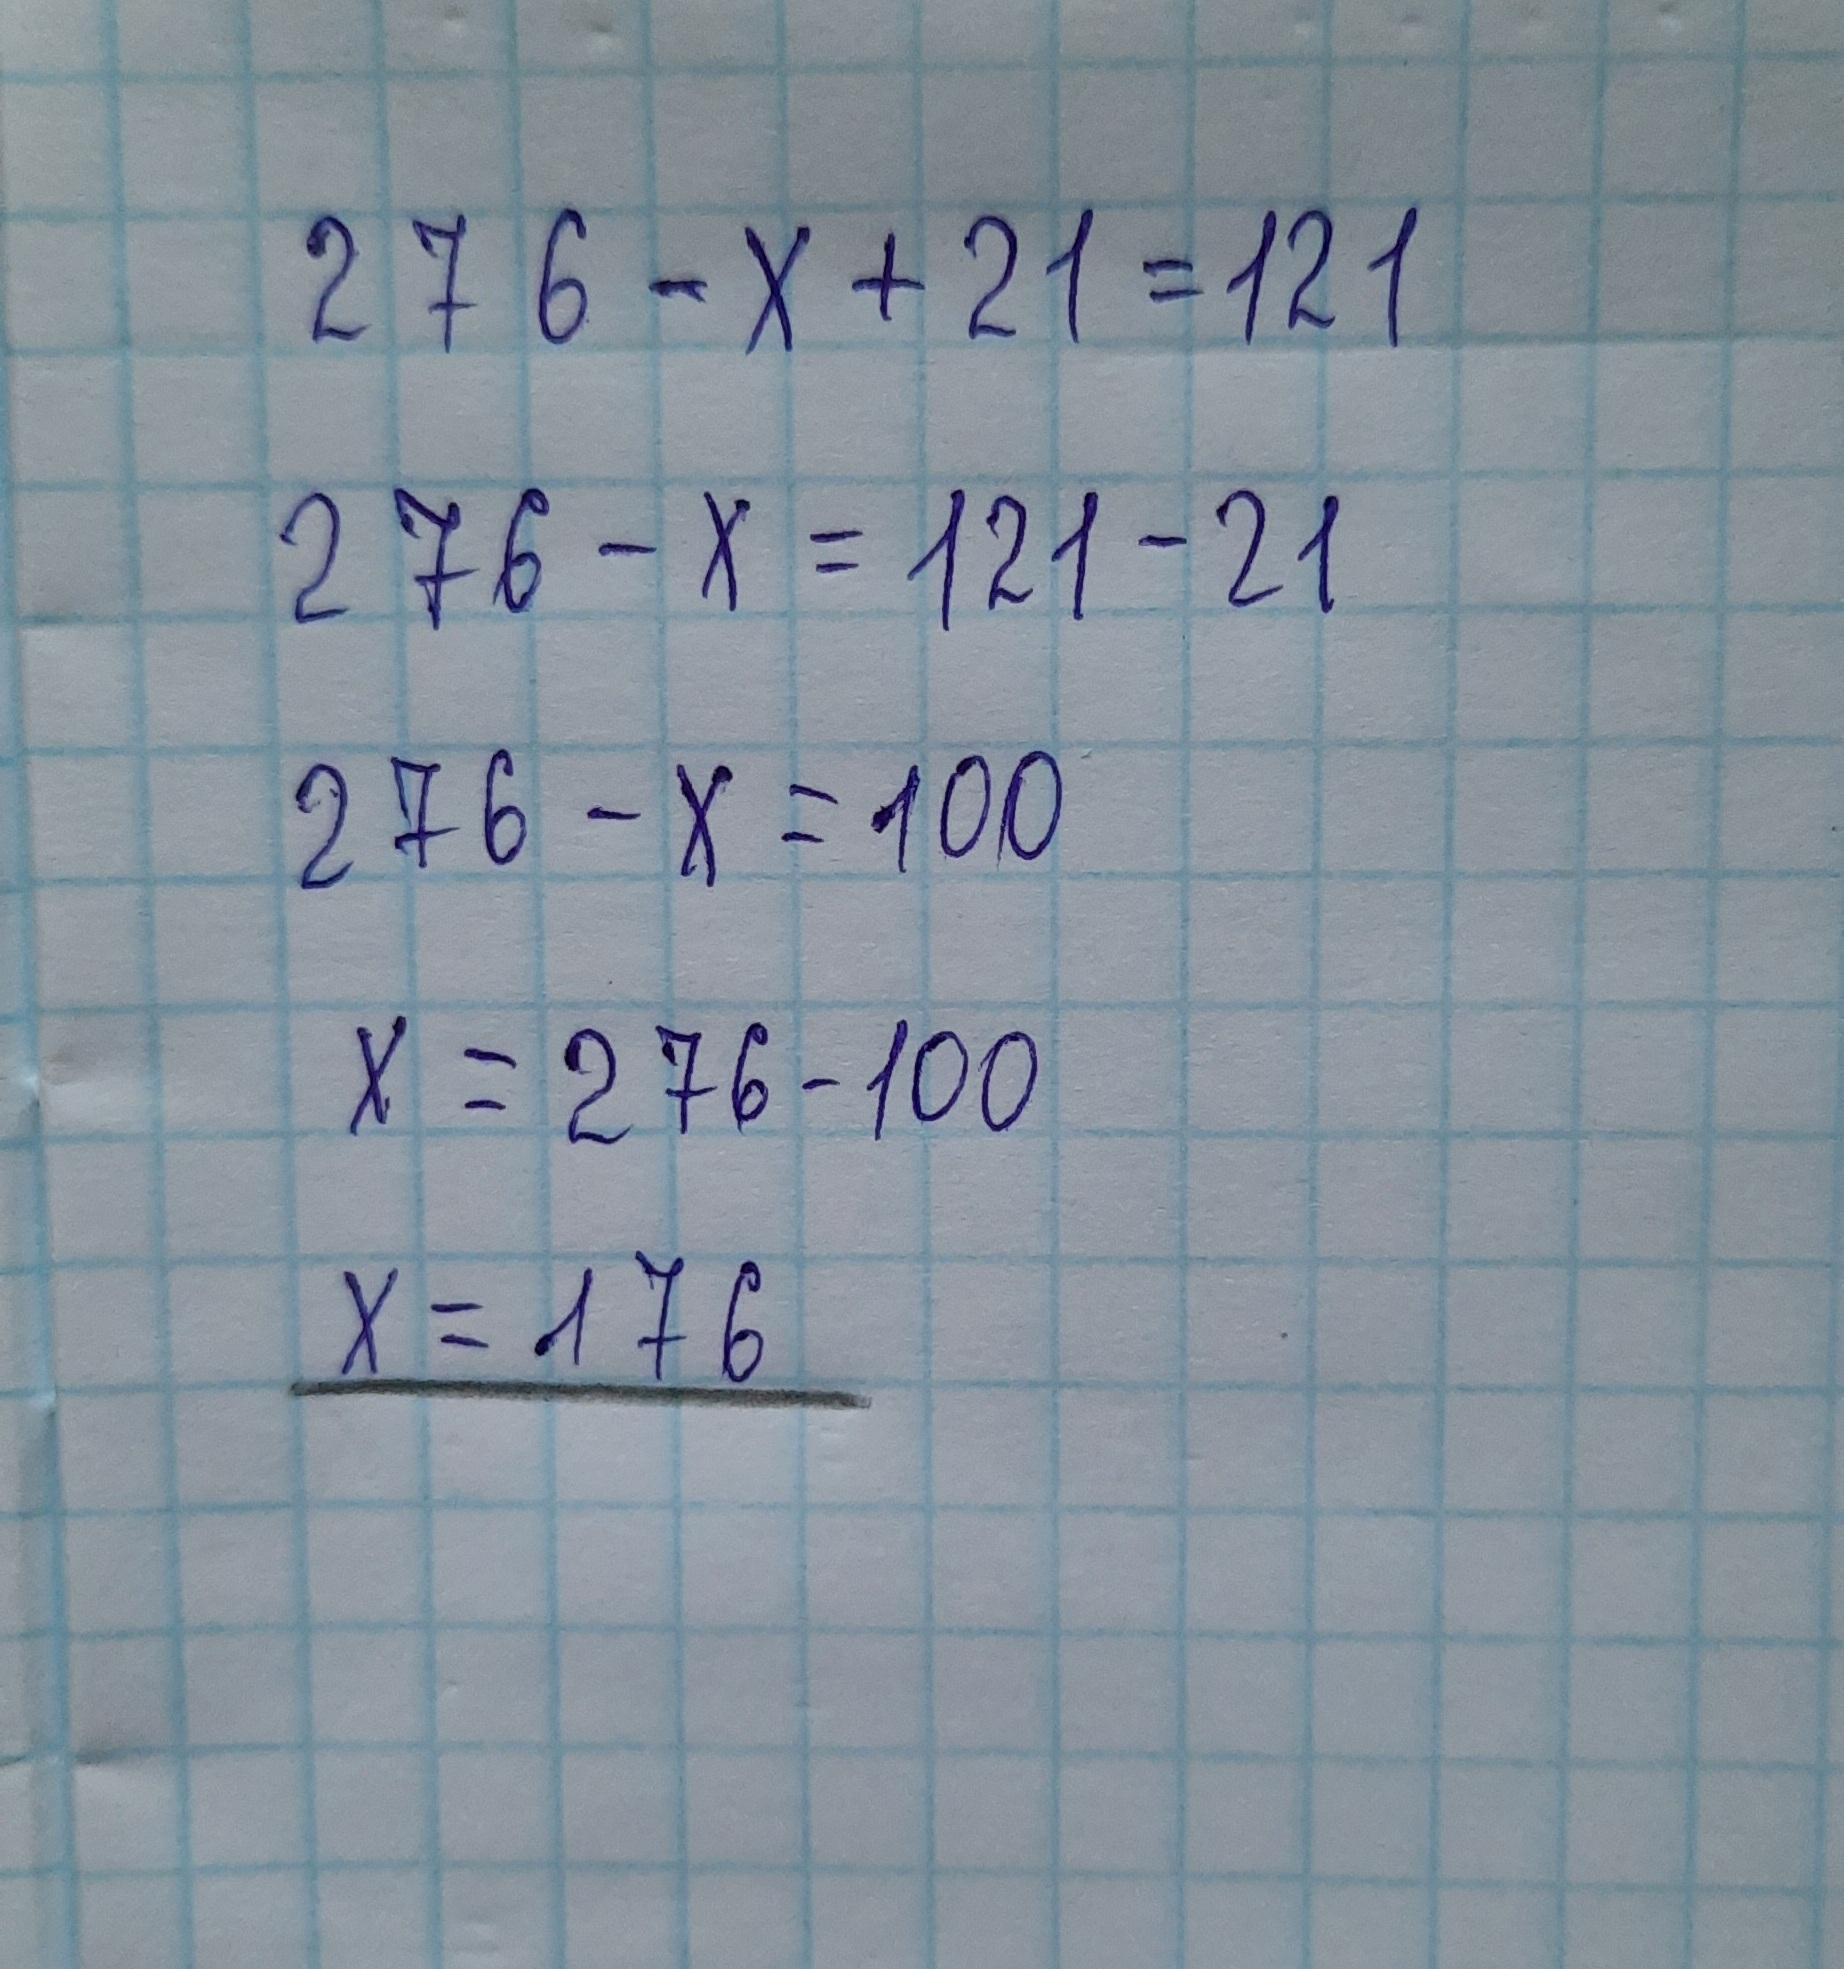 276 - x + 21 = 121
276 - x = 121 - 21
276 - x = 100
x = 276 - 100
x = 176